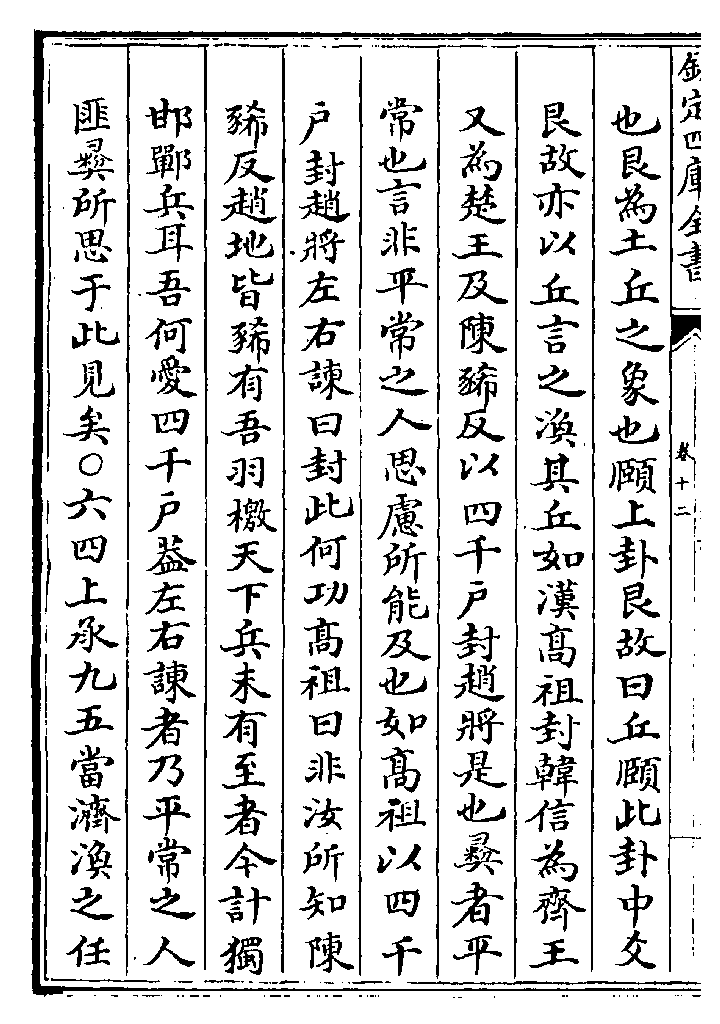 欽定四庫全書
卷十二
也艮為土丘之象也頤上卦艮故曰丘頤此卦中爻
艮故亦以丘言之渙其丘如漢高祖封韓信為齊王
又為楚王及陳豨反以四千戶封趙將是也彛者平
常也言非平常之人思慮所能及也如高祖以四千
戶封趙將左右諫曰封此何功高祖曰非汝所知陳
豨反趙地皆豨有吾羽檄天下兵未有至者今計獨
邯鄲兵耳吾何愛四千戶葢左右諫者乃平常之人
匪彛所思于此見矣○六四上承九五當濟渙之任